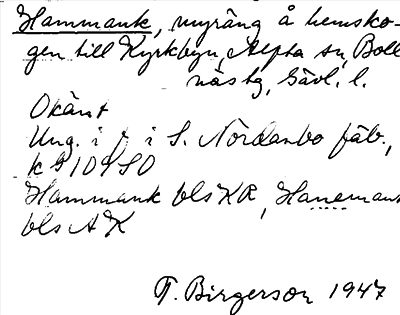 Hammank, myräng å hemsko-
gen till Kyrkbyn, Alfta sn, Boll
näs tg, Gävl. l.
Okänt
Ung. i r i S. Nordanbo fäb.,
k 109 SO
Hammank bls KR, Hanemank
bls AK
T. Birgerson 1947